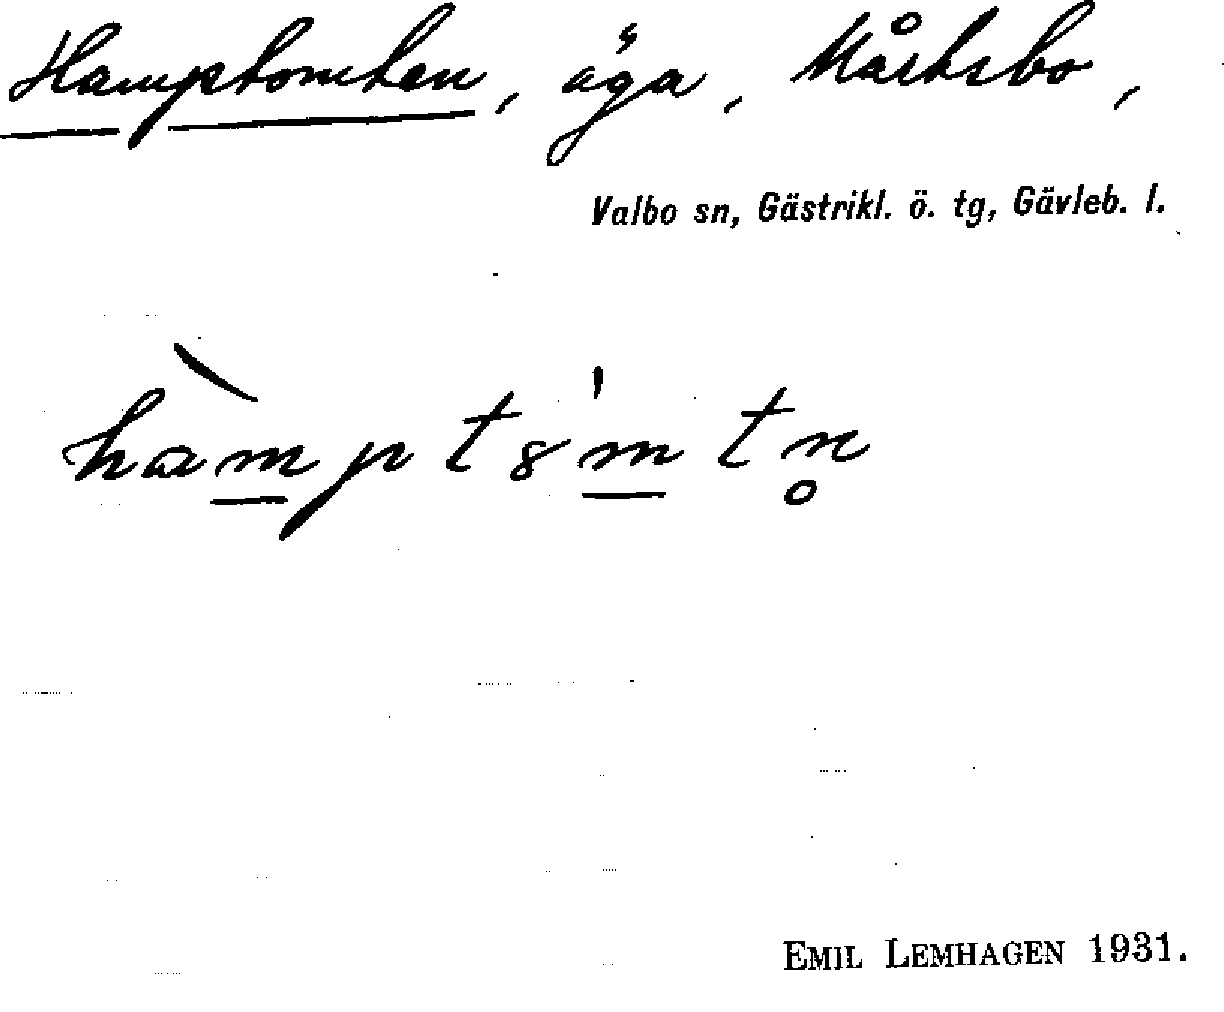 Hamptomten, äga, Mårtsbo,
Valbo sn, Gästrikl. ö. tg, Gävleb. l.
EMIL LEMHAGEN 1931.